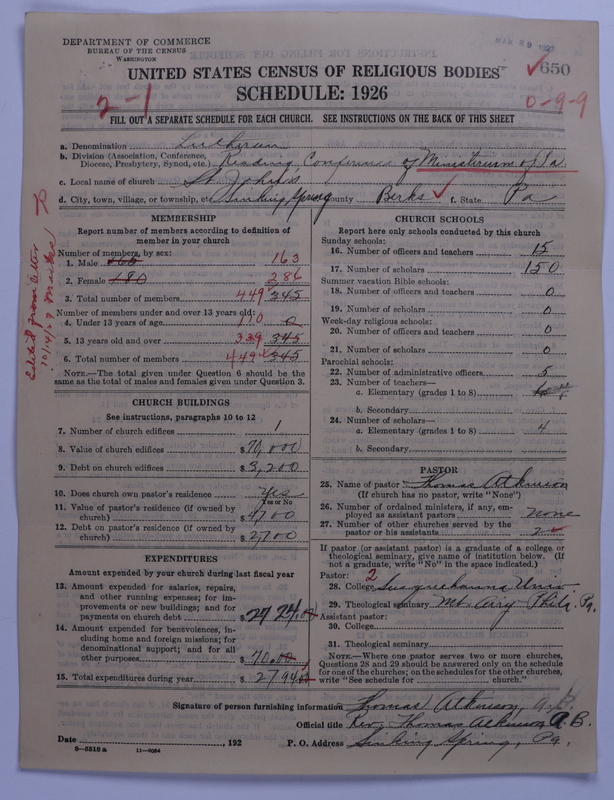 DEPARTMENT OF COMMERCE
BUREAU OF THE CENSUS
WASHINGTON
UNITED STATES CENSUS OF RELIGIOUS BODIES
650
SCHEDULE: 1926
2-1
0-9-9
FILL OUT A SEPARATE SCHEDULE FOR EACH CHURCH. SEE INSTRUCTIONS ON THE BACK OF THIS SHEET
a. Denomination Lutheran
b. Division (Association, Conference, Diocese, Presbytery, Synod, etc.) Reading Conference of Ministerium of Pa.
c. Local name of church St. John's
d. City, town, village, or township, etc. Sinking Spring County Berks f. State Pa
MEMBERSHIP
Report number of members according to definition of member in your church
Number of members, by sex:
1. Male 163
2. Female 180 286
3. Total number of members 449 345
Number of members under and over 13 years old:
4. Under 13 years of age 110 0
5. 13 years old and over 339 345
6. Total number of members 449 345
NOTE.—The total given under Question 6 should be the same as the total of males and females given under Question 3.
CHURCH BUILDINGS
See instructions, paragraphs 10 to 12
7. Number of church edifices 1
8. Value of church edifices $ 70,000
9. Debt on church edifices $ 3,200
10. Does church own pastor's residence Yes
Yes or No
11. Value of pastor's residence (if owned by church) $ 4700
12. Debt on pastor's residence (if owned by church) $ 2,700
EXPENDITURES
Amount expended by your church during last fiscal year
13. Amount expended for salaries, repairs, and other running expenses; for improvements or new buildings; and for payments on church debt $ 2724.00
14. Amount expended for benevolences, including home and foreign missions; for denominational support; and for all other purposes $ 70.00
15. Total expenditures during year $ 2794
CHURCH SCHOOLS
Report here only schools conducted by this church
Sunday schools:
16. Number of officers and teachers 15
17. Number of scholars 150
Summer vacation Bible schools:
18. Number of officers and teachers 0
19. Number of scholars 0
Week-day religious schools:
20. Number of officers and teachers 0
21. Number of scholars 0
Parochial schools:
22. Number of administrative officers 5
23. Number of teachers—
a. Elementary (grades 1 to 8)
b. Secondary
24. Number of scholars—
a. Elementary (grades 1 to 8) 4
b. Secondary
PASTOR
25. Name of pastor Thomas Atkinson
(If church has no pastor, write "None")
26. Number of ordained ministers, if any, employed as assistant pastors none
27. Number of other churches served by the pastor or his assistants 2
If pastor (or assistant pastor) is a graduate of a college or theological seminary, give name of institution below. (If not a graduate, write "No" in the space indicated.)
Pastor: 2
28. College Susquehanna Univ
29. Theological seminary Mt. Airy Phila. Pa.
Assistant pastor:
30. College
31. Theological seminary
NOTE.—Where one pastor serves two or more churches, Questions 28 and 29 should be answered only on the schedule for one of the churches; on the schedules for the other churches, write "See schedule for ........ church."
Signature of person furnishing information Thomas Atkinson, A.B.
Official title Rev. Thomas Atkinson A.B.
Date , 192 P. O. Address Sinking Spring, Pa.
8—5518 a 11—9034